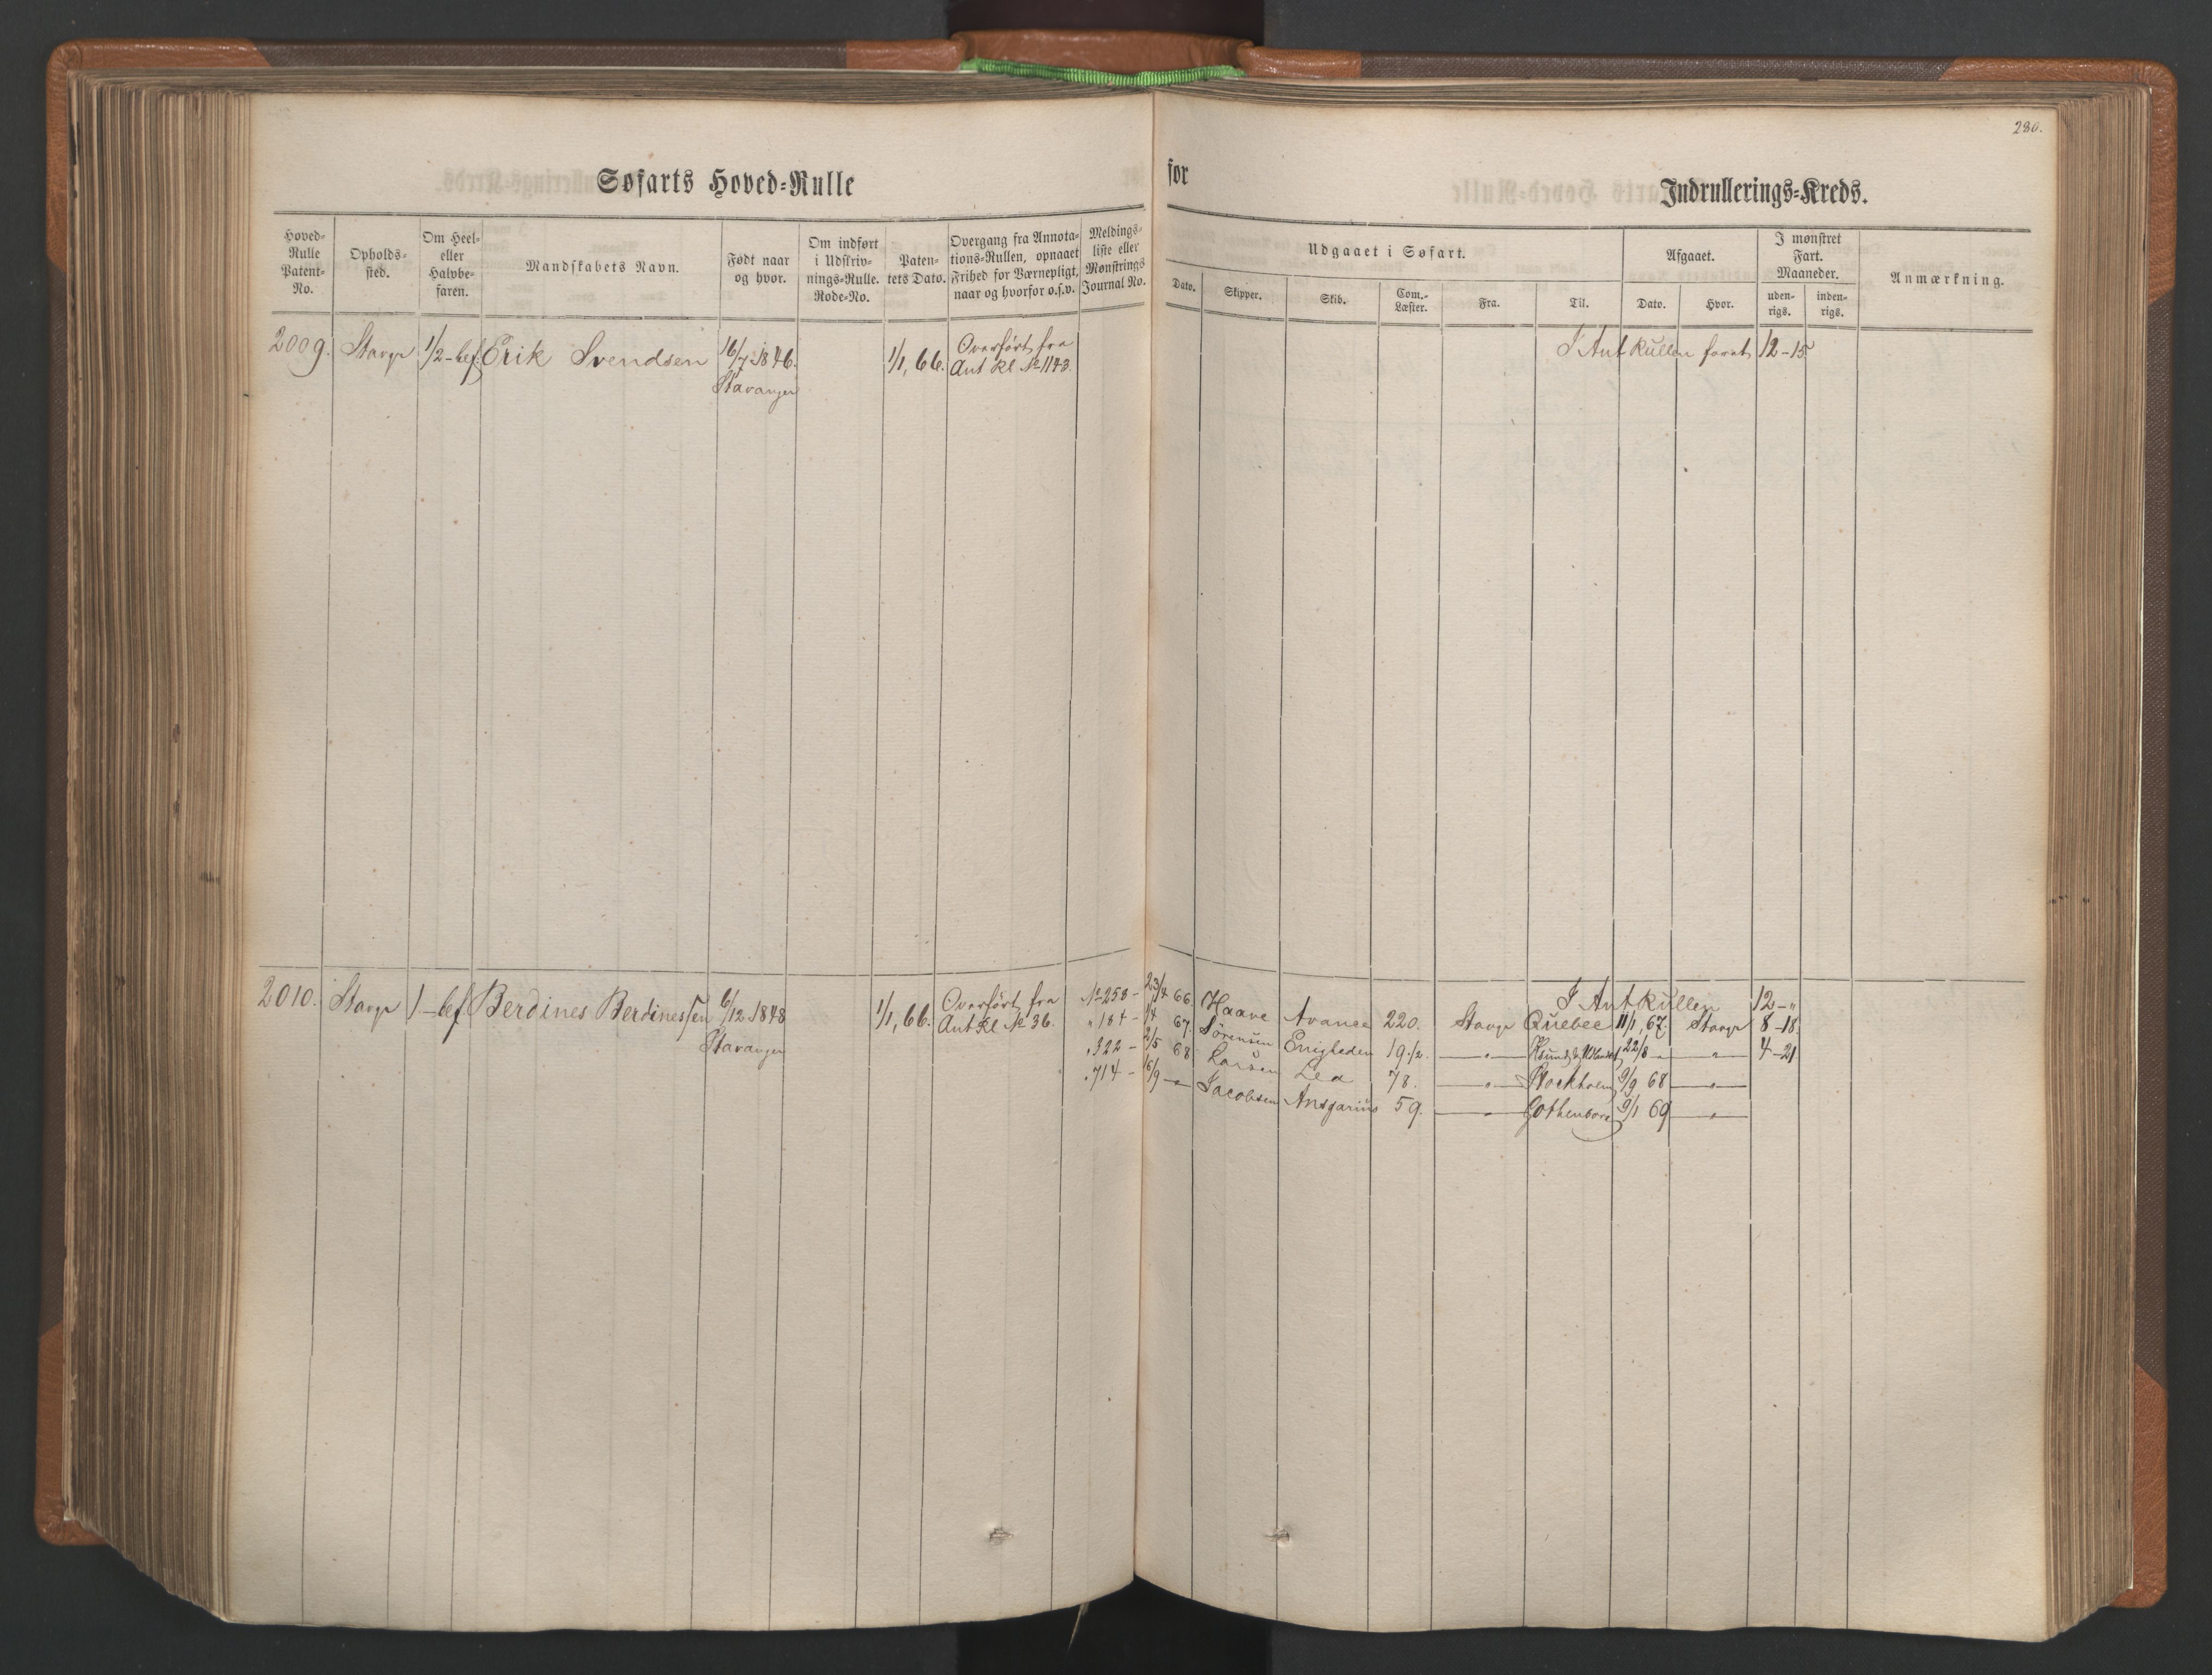 280.
Søfarts Hoved=Rulle
for
Indrullerings=Kreds.
Hoved=Rulle Patent=No.
Opholds=sted.
Om Heel= eller Halvbe=faren.
Mandskabets Navn.
Født naar og hvor.
Om indført i Udskriv=nings=Rulle. Rode=No.
Paten=tets Dato.
Overgang fra Annota=tions=Rullen, opnaaet Frihed for Værnepligt, naar og hvorfor o.s.v.
Meldings=liste eller Mønstrings Journal No.
Udgaaet i Søfart.
Dato.
Skipper.
Skib.
Com.=Læster.
Fra.
Til.
Afgaaet.
Dato.
Hvor.
I mønstret Fart. Maaneder.
uden=rigs.
inden=rigs.
Anmærkning.
2009. Stavgr 1/2-bef. Erik Svendsen 16/7 1846. 1/1, 66. Overført fra I Ant Rullen farat 12-15
Stavanger Ant Rl No 1143.
2010. Stavgr 1-bef Berdines Berdinessen 6/12 1848 1/1, 66. Overført fra I Ant Rullen 12-"
Stavanger Ant Rl No 36.
No 258 - 23/4 66. Haave Avance 220. Stavgr Quebec 11/1, 67. Stavgr 8-18.
" 184 - 1/4 67. Sørensen Enigheden 19 1/2. " 22/8 " " 4-21
" 322 - 2/5 68 Larsen Lea 78. " Stockholm 9/9 68 "
" 714 - 16/9 " Jacobsen Ansgarius 59. " Gothenborg 9/1 69 "